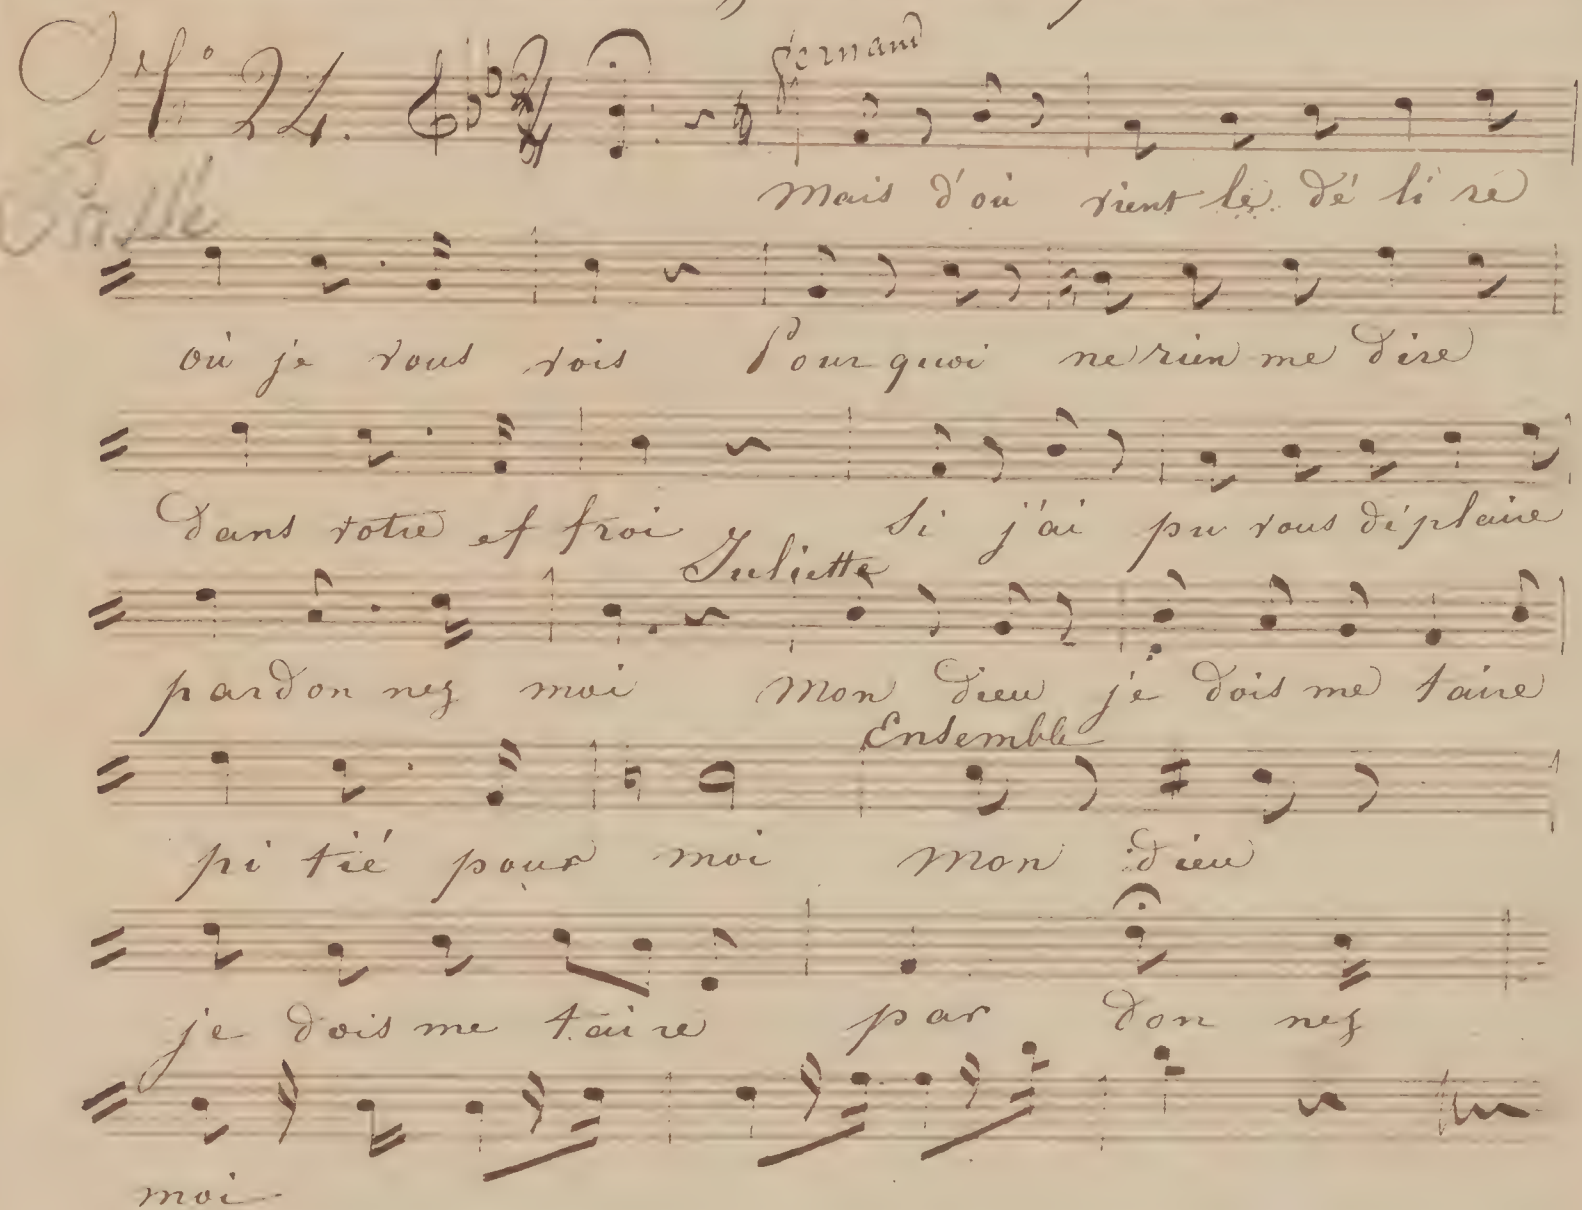 No 24.
fernand
mais d'où vient le dé li re
où je vous vois Pour quoi ne rien me dire
dans votre ef froi si j'ai pu vous déplaire
Juliette
pardon nez moi mon dieu je dois me taire
Ensemble
pi tié pour moi mon dieu
je dois me tai re par don nez
moi